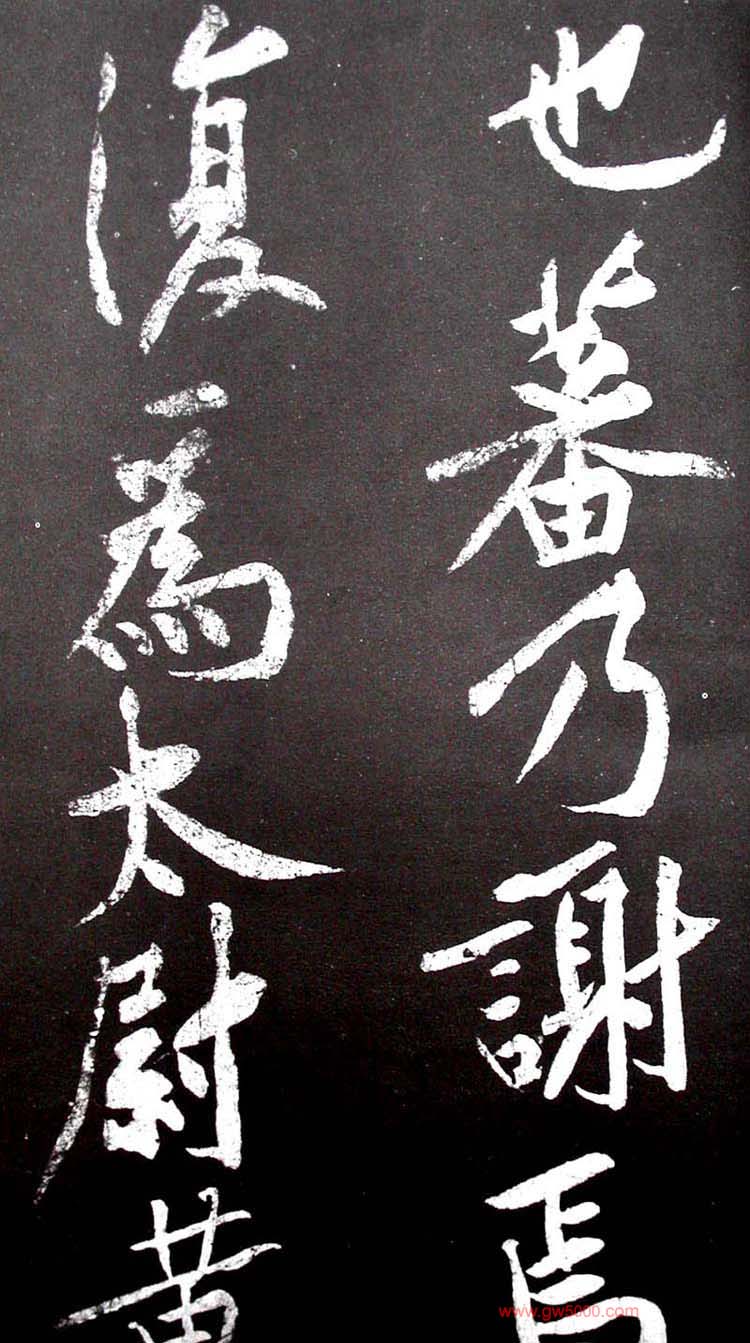 也蕃乃謝焉
復為太尉黄
www.gw5000.com